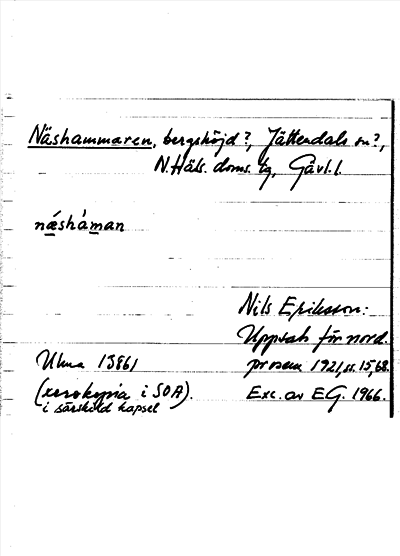 Näshammaren, bergshöjd?, Jättendals sn?,
N.Häls. doms. tg, Gävl.l.
næ̀shàman
Nils Eriksson:
Uppsats för nord.
Ulma 13861 prosem 1921, ss. 15, 68.
(xerokopia i SOA). Exc. av EG. 1966.
i särskild kapsel